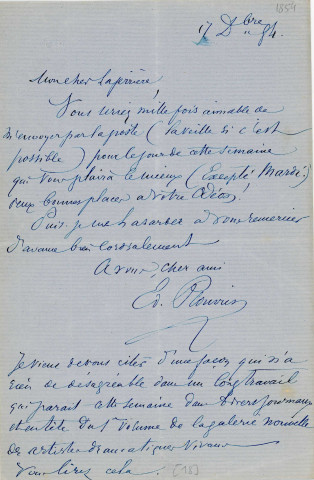 1854
17 Dbre 54.
Mon cher Laferrière
Vous seriez mille fois aimable de
m'envoyer par la poste (la veille si c'est
possible) pour le jour de cette semaine
qui vous plaira le mieux (Excepté Mardi)
deux bonnes places à votre Odéon!
Puis je me hasarder à vous remercier
d'avance bien cordialement
A vous cher ami
Ed.
Je viens de vous citer d'une façon qui n'a
rien de désagréable dans un long travail
qui parait cette semaine dans divers journaux
et en tête du 1 volume de la galerie nouvelle
des artistes dramatiques vivans
Vous lirez cela.